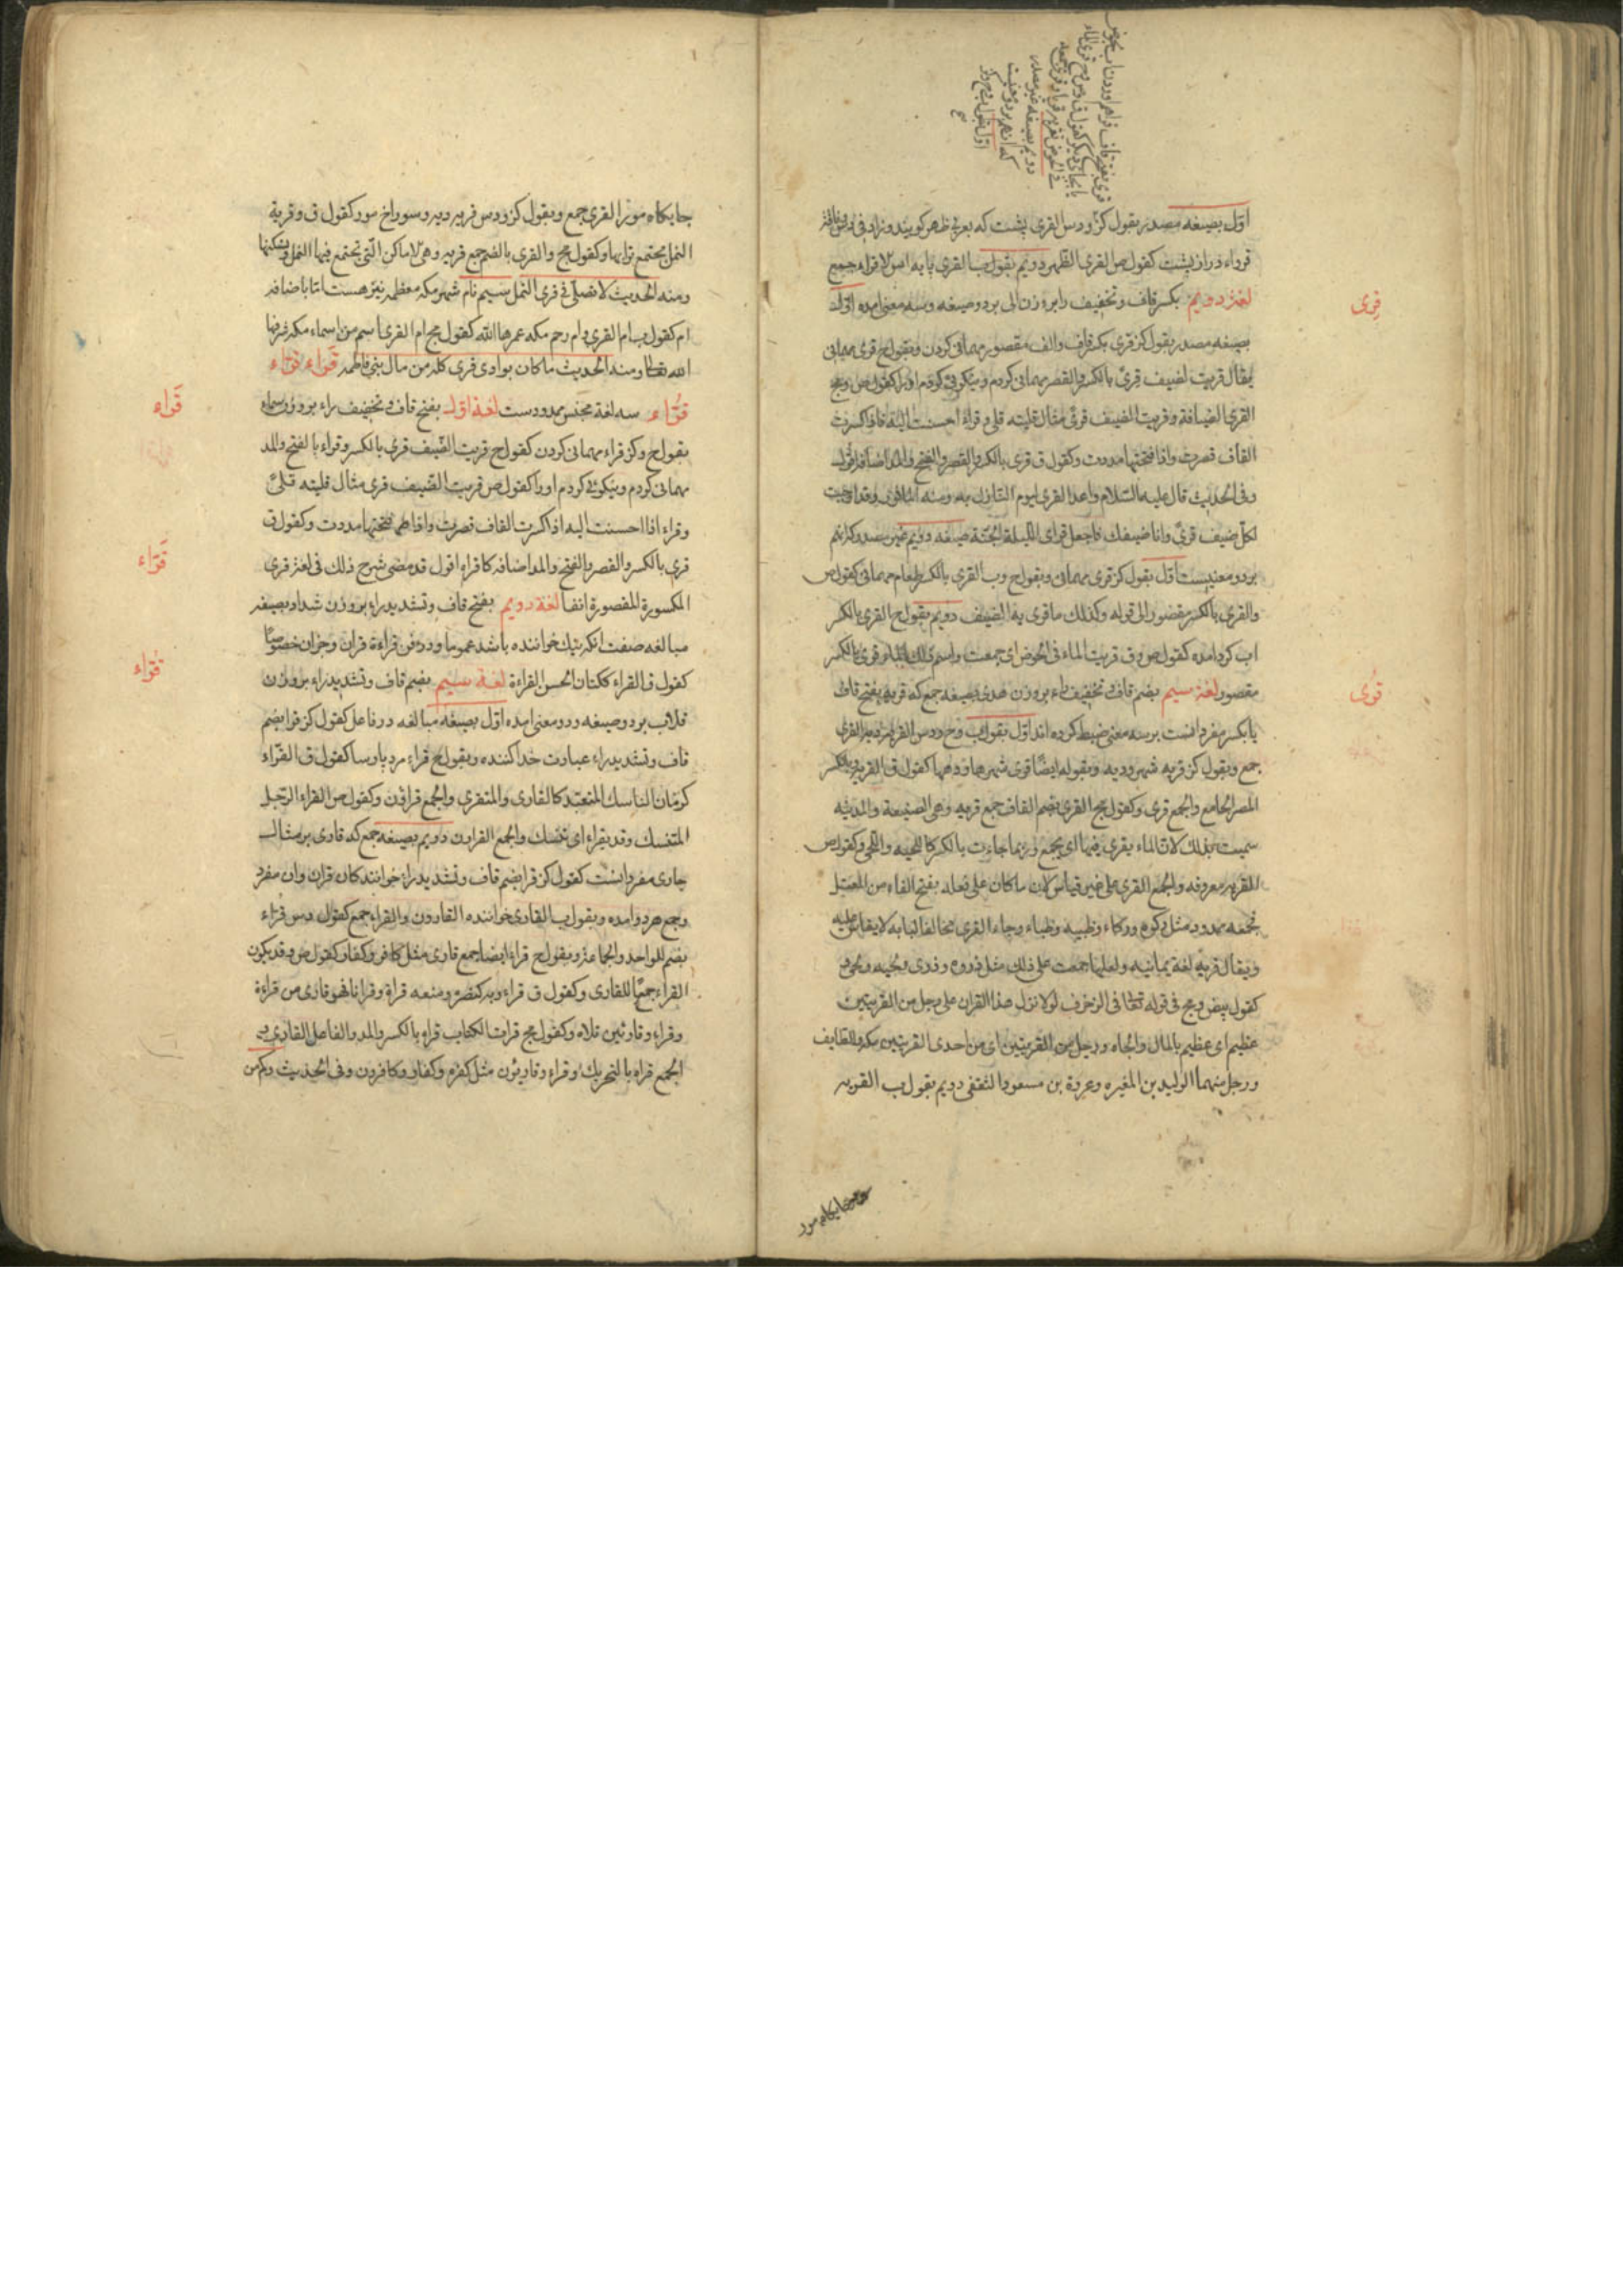 اوّل بصیغه مصدر بقول کز و دس القری پشت که بعربی ظهر کویند
قرواء دراز پشت کقول ص القری الظهر دویم بقول ب القری
لغة دویم بکسر قاف و تخفیف را بر وزن الی بر دو صیغه و سه معنی امده اوّل
قِری
بصیغه مصدر بقول کز قری بکسر قاف و الف مقصور مهمانی کردن و بقول ح قری مهمانی
یقال قریت الضیف قریً بالکسر و القصر مهمانی کردم و نیکوئی کردم او را کقول ص و مج
القری الضیافة و قریت الضیف قریً مثال قلیته قلی و قراءً احسنت الیه فاذا کسرت
القاف قصرت و اذا فتحتها مددت و کقول ق قری بالکسر و القصر و الفتح و المد اضافه
و فی الحدیث قال علیه السّلام و اعدّ القری لیوم النازل به و منه
لکل ضیف قریً و انا ضیفک فاجعل قرای اللیلة الجنّة صیغه دویم غیر مصدر که انهم
بر دو معنیست اوّل بقول کز قری مهمانی و بقول ح و ب القری بالکسر طعام مهمانی کقول ص
و القری بالکسر مقصور الی قوله و کذلک ما قری به الضیف دویم بقول ح القری بالکسر
اب کرد امده کقول ص و ق قریت الماء فی الحوض ای جمعت و اسم ذلک الماء قری بالکسر
مقصور لغة سیم بضم قاف و تخفیف راء بر وزن هدی بصیغه جمع که قریه بفتح قاف
قُری
یا بکسر مفرد انست بر سه معنی ضبط کرده اند اوّل بقول ب و ح و دس القریه دیه القری
جمع و بقول کز قریه شهر و دیه و بقوله ایضًا قری شهرها و دهها کقول ق القریه و یکسر
المصر الجامع و الجمع قری و کقول مج القری بضم القاف جمع قریه و هی الضیعة و المدینه
سمیت بذلک لان الماء یقری فیها ای یجمع و ربما جاءت بالکسر کاللحیه و اللحی و کقول ص
القریه معروفه و الجمع القری علی غیر قیاس لان ما کان علی فعله بفتح الفاء من المعتل
فجمعه ممدود مثل رکوه و رکاء و ظبیه و ظباء و جاء القری مخالفا لبابه لا یقاس علیه
و یقال قریه لغة یمانیه و لعلها جمعت علی ذلک مثل ذروه و ذری و لحیه و لحی
کقول بیض و مج فی قوله تعالی فی الزخرف لولا نزل هذا القران علی رجل من القریتین
عظیم ای عظیم بالمال و الجاه و رجل من القریتین ای من احدی القریتین مکه و الطایف
و رجل منهما الولید بن المغیره و عروة بن مسعود الثقفی دویم بقول ب القریه
جایکاه مور
جایکاه مور القری جمع و بقول کز و دس قریه دیه و سوراخ مور کقول ق و قریة
النمل مجتمع ترابها و کقول مج و القری بالضم جمع قریه و هی الاماکن الّتی تجتمع فیها النمل و تسکنها
و منه الحدیث لا تصلّ فی قری النمل سیم نام شهر مکه معظمه نیز هست امّا باضافه
ام کقول ب ام القری و ام رحم مکه عمرها اللّه کقول مج ام القری اسم من اسماء مکه شرفها
اللّه تعالی و منه الحدیث ما کان بوادی قری کله من مال بنی فاطمه قَراء قَرّاء
قُرّاء سه لغة مجنس ممدودست لغة اوّل بفتح قاف و تخفیف راء بر وزن سماء
قَراء
بقول ح و کز قراء مهمانی کردن کقول ح قریت الضّیف قری بالکسر و قراء بالفتح و المد
مهمانی کردم و نیکوئی کردم او را کقول ص قریت الضّیف قری مثال قلیته قلیً
و قراء اذا احسنت الیه اذا کسرت القاف قصرت و اذا فتحتها مددت و کقول ق
قری بالکسر و القصر و الفتح و المد اضافه کاقراه اقول قد مضی شرح ذلک فی لغة قری
قَرّاء
المکسورة المقصورة انفا لغة دویم بفتح قاف و تشدید راء بر وزن شداد بصیغه
مبالغه صفت انکه نیک خواننده باشد عموما و در فن قراءة قران و جزان خصوصًا
قُرّاء
کقول ق القراء ککتان الحسن القراءة لغة سیم بضم قاف و تشدید راء بر وزن
قلاب بر دو صیغه و دو معنی امده اوّل بصیغه مبالغه در فاعل کقول کز قرا بضم
قاف و تشدید راء عبادت خدا کننده و بقول ح قراء مرد پارسا کقول ق القرّاء
کرمّان الناسک المتعبّد کالقاری و المتقری و الجمع قراؤن و کقول ص القراء الرّجل
المتنسک و قد یقراء ای تنسک و الجمع القراؤن دویم بصیغه جمع که قاری بر مثال
جاری مفرد انست کقول کز قرا بضم قاف و تشدید راء خوانندکان قران و ان مفرد
و جمع هر دو امده و بقول ب القاری خواننده القارون و القراء جمع کقول دس قراء
بضم للواحد و الجماعة و بقول ح قراء ایضا جمع قاری مثل کافر و کفار کقول ص و قد یکون
القراء جمعًا للقاری و کقول ق قراء و به کنصر و منعه قراة و قرانا فهو قاری من قراءة
و قراء و قارئین تلاه و کقول مج قرات الکتاب قراء بالکسر و المد و الفاعل القاری و
الجمع قراه بالتحریک و قراء و قارئون مثل کفره و کفار و کافرون و فی الحدیث و کم من